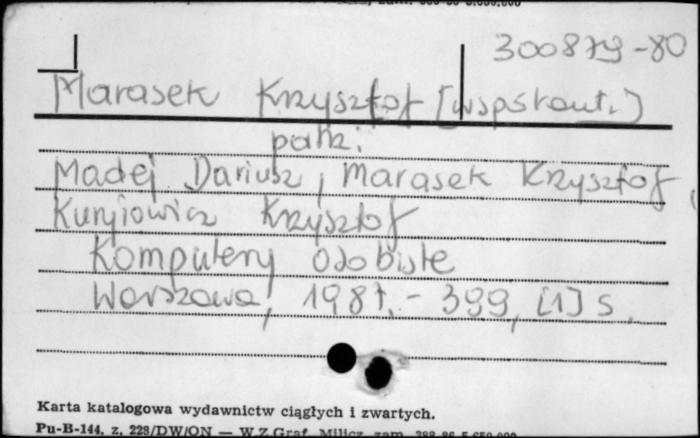 300879-80
Marasek Krzysztof [współaut.]
patrz:
Madej Dariusz, Marasek Krzysztof,
Kuryłowicz Krzysztof
Komputery osobiste
Warszawa, 1987. - 399, [1] s.
Karta katalogowa wydawnictw ciągłych i zwartych.
Pu-B-144, z. 228/DW/ON — W.Z.Graf. Milicz, zam.